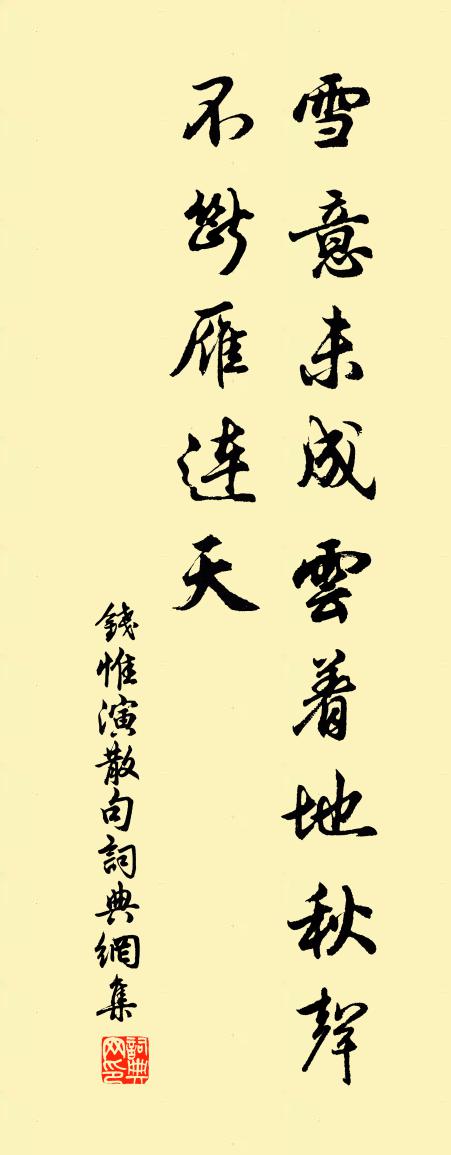 雪意未成雲着地秋聲
不斷雁連天
錢惟演散句詞典網集
詞典网印